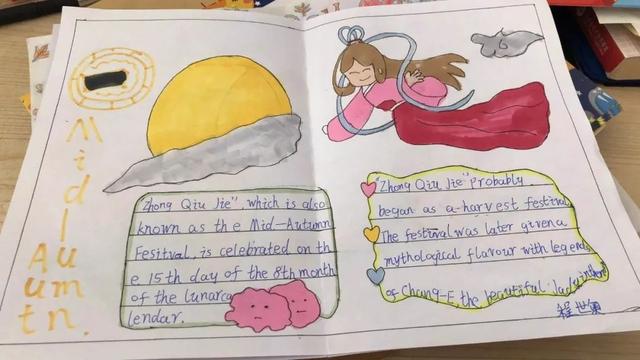 M
i
d
l
A u
u m
t n.
Zhong Qiu Jie", which is also
known as the Mid-Autumn
Fesitval, is celebrated on th
e 15th day of the 8th month
of the lunarca
lendar.
"Zhong Qiu Jie" probably
began as a harvest festival
The festival was later given a
mythological flavour with legends
of Chang-E, the beautiful lady in the